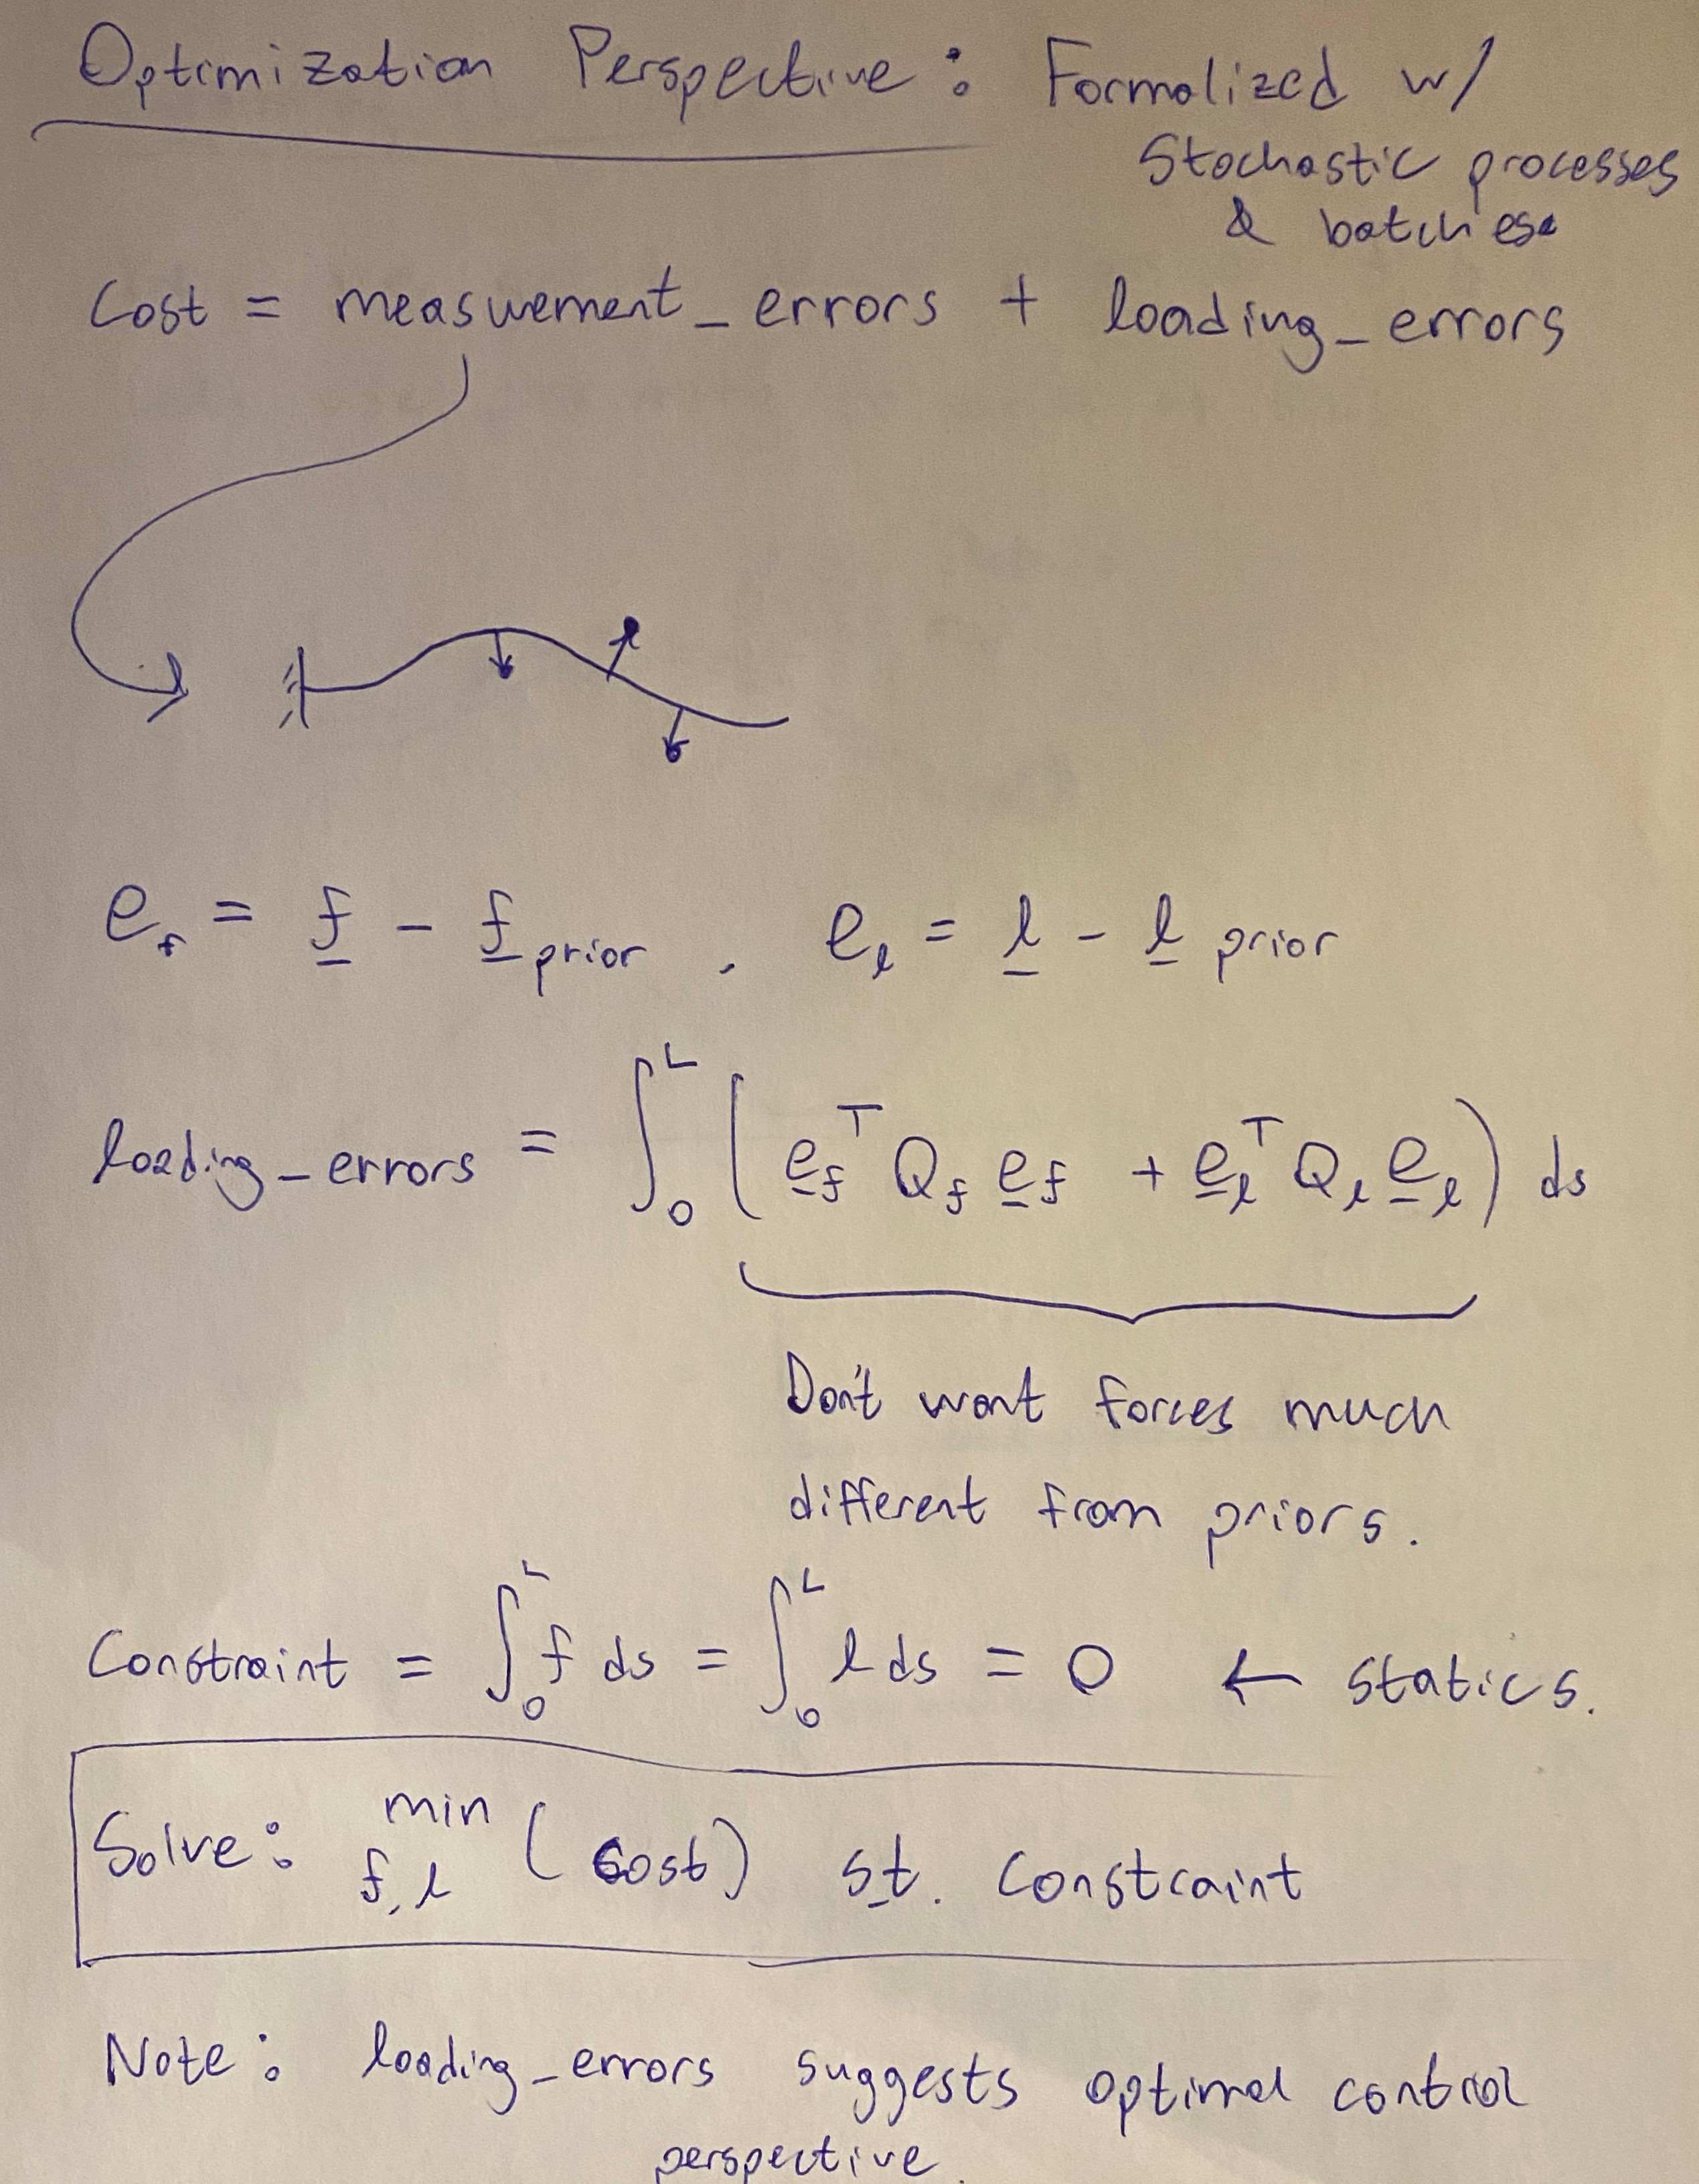 Optimization Perspective: Formalized w/
Stochastic processes
& batches.
Cost = measurement_errors + loading_errors
e_f = f - f_prior , e_l = l - l_prior
loading_errors = ∫_0^L (e_f^T Q_f e_f + e_l^T Q_l e_l) ds
Don't want forces much
different from priors.
Constraint = ∫_0^L f ds = ∫_0^L l ds = 0 ← statics.
Solve: min_{f,l} (cost) s.t. constraint
Note: loading_errors suggests optimal control
perspective.